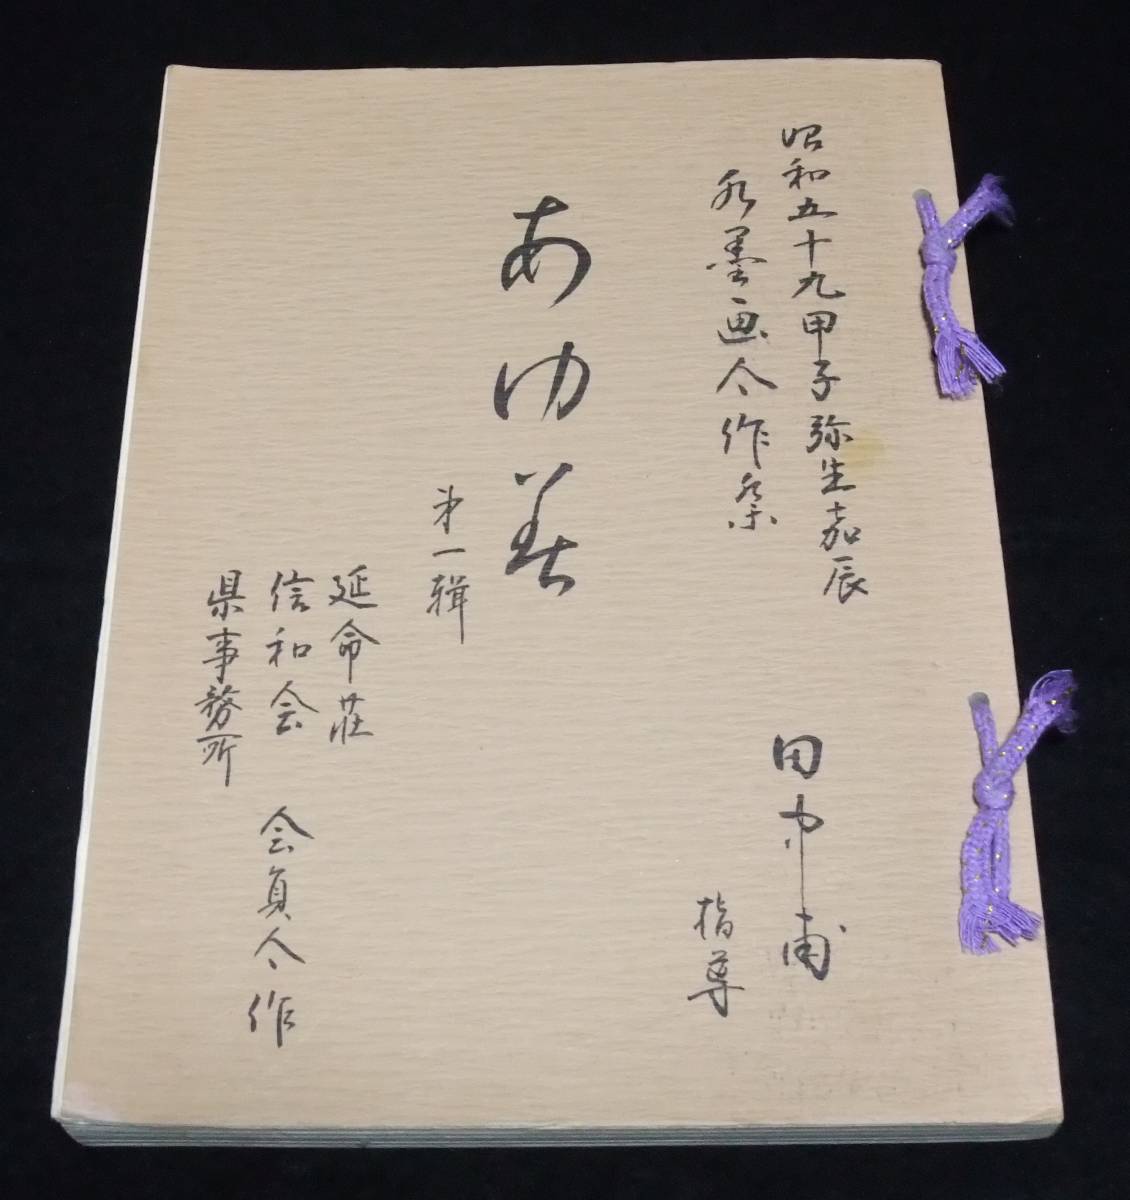 昭和五十九甲子弥生嘉辰
水墨画合作集
田中甫
指導
あゆ美
第一輯
延命荘
信和会 会員合作
県事務所